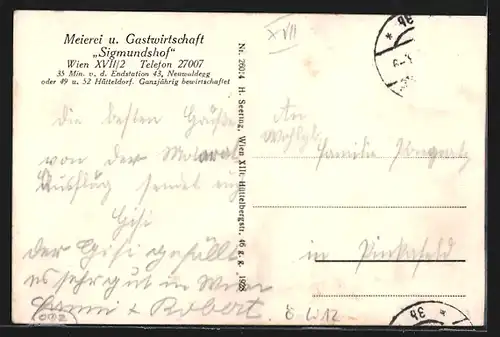 Meierei u. Gastwirtschaft
„Sigmundshof“
Wien XVII/2 Telefon 27007
35 Min. v. d. Endstation 43, Neuwaldegg
oder 49 u. 52 Hütteldorf. Ganzjährig bewirtschaftet
XVII
Nr. 26014 H. Seering, Wien XIII. Hüttelbergstr. 46 g. g. 1928
die besten Grüße
von der
Ausflug sendet euch
Gisi
der Gisi gefällt
es sehr gut in Wien
+ Robert.
An
Familie
in Pinkafeld